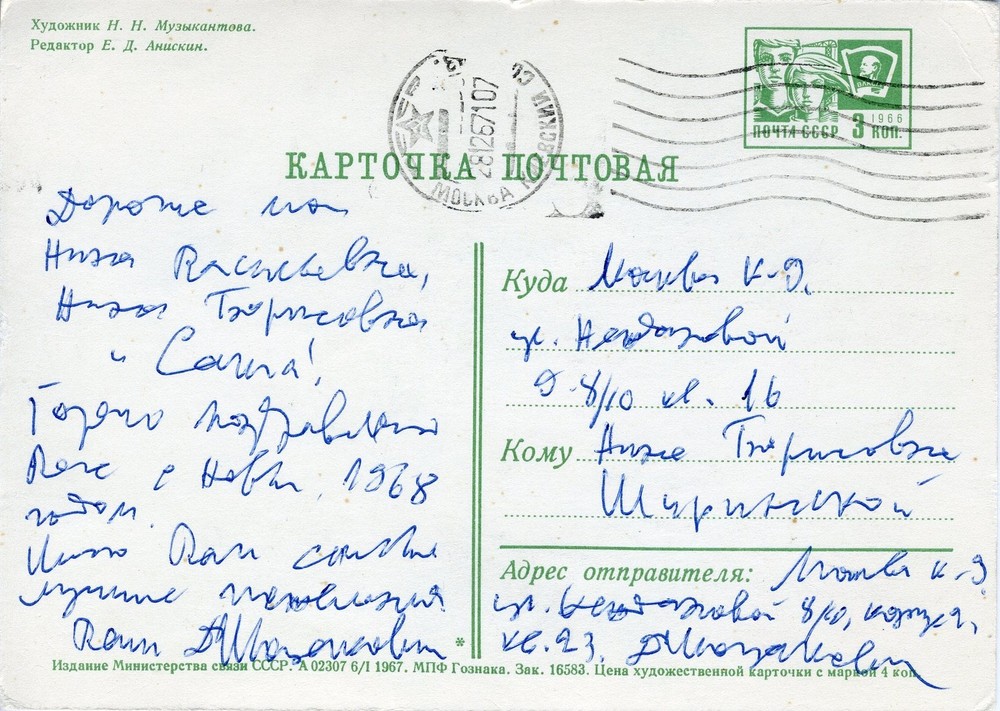 Художник Н. Н. Музыкантова.
Редактор Е. Д. Анискин.
ПОЧТА СССР 3 КОП.
1966
28126710 7
МОСКВА
КАРТОЧКА ПОЧТОВАЯ
Дорогие мои
Нина Васильевна,
Нина Борисовна
и Саша!
Горячо поздравляю
Вас с Новым 1968
годом.
Шлю Вам самые
лучшие пожелания
Ваш ДШостакович
Куда Москва К-9,
ул. Неждановой
д 8/10 кв. 16
Кому Нине Борисовне
Ширинской
Адрес отправителя: Москва К-9
ул. Неждановой 8/10, корпус 1,
кв. 23, ДШостакович
Издание Министерства связи СССР. А 02307 6/I 1967. МПФ Гознака. Зак. 16583. Цена художественной карточки с маркой 4 коп.